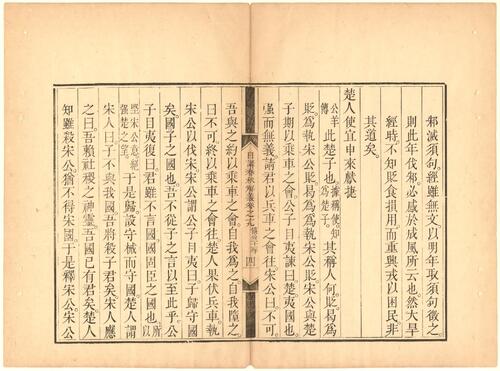 邾滅須句經雖無文以明年取須句徵之
則此年伐邾必感於成風所云也然大旱
經時不知貶食損用而重興戎以困民非
其道矣。
楚人使宜申來獻捷
公羊傳此楚子也。據稱使知為楚子。其稱人何。貶。曷為
貶為執宋公貶曷為為執宋公貶宋公與楚
子期以乘車之會公子目夷諫曰楚夷國也
彊而無義請君以兵車之會往宋公曰不可
日講春秋解義卷之九 四
吾與之約以乘車之會自我為之自我墮之
曰不可終以乘車之會往楚人果伏兵車執
宋公以伐宋宋公謂公子目夷曰子歸守國
矣。國子之國也。吾不從子之言以至此乎公
子目夷復曰。君雖不言國國固臣之國也。所以
堅宋公意絕彊楚之望。于是歸設守械而守國楚人謂
宋人曰子不與我國。吾將殺子君矣宋人應
之曰。吾賴社稷之神靈吾國已有君矣楚人
知雖殺宋公。猶不得宋國。于是釋宋公宋公